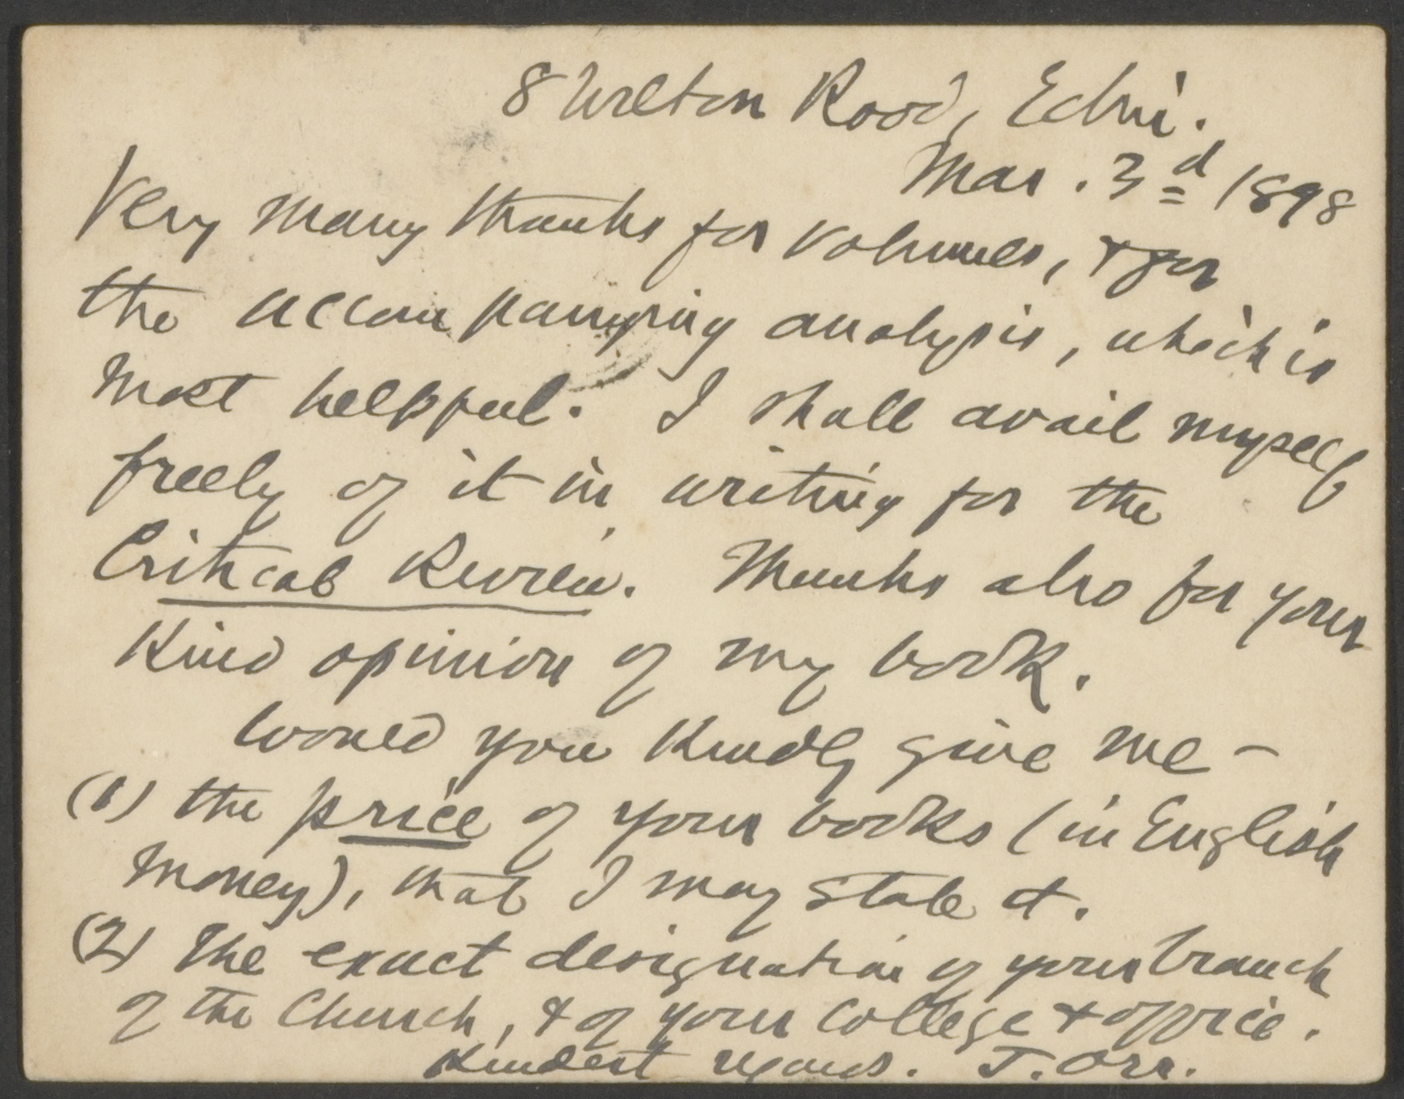 8 Wilton Road, Edin.
Mar. 3d 1898
Very many thanks for volumes, & for
the accompanying analysis, which is
most helpful. I shall avail myself
freely of it in writing for the
Critical Review. Thanks also for your
kind opinion of my book.
Would you kindly give me –
(1) the price of your books (in English
money), that I may state it.
(2) The exact designation of your branch
of the Church, & of your College & office.
Kindest regards. J. Orr.